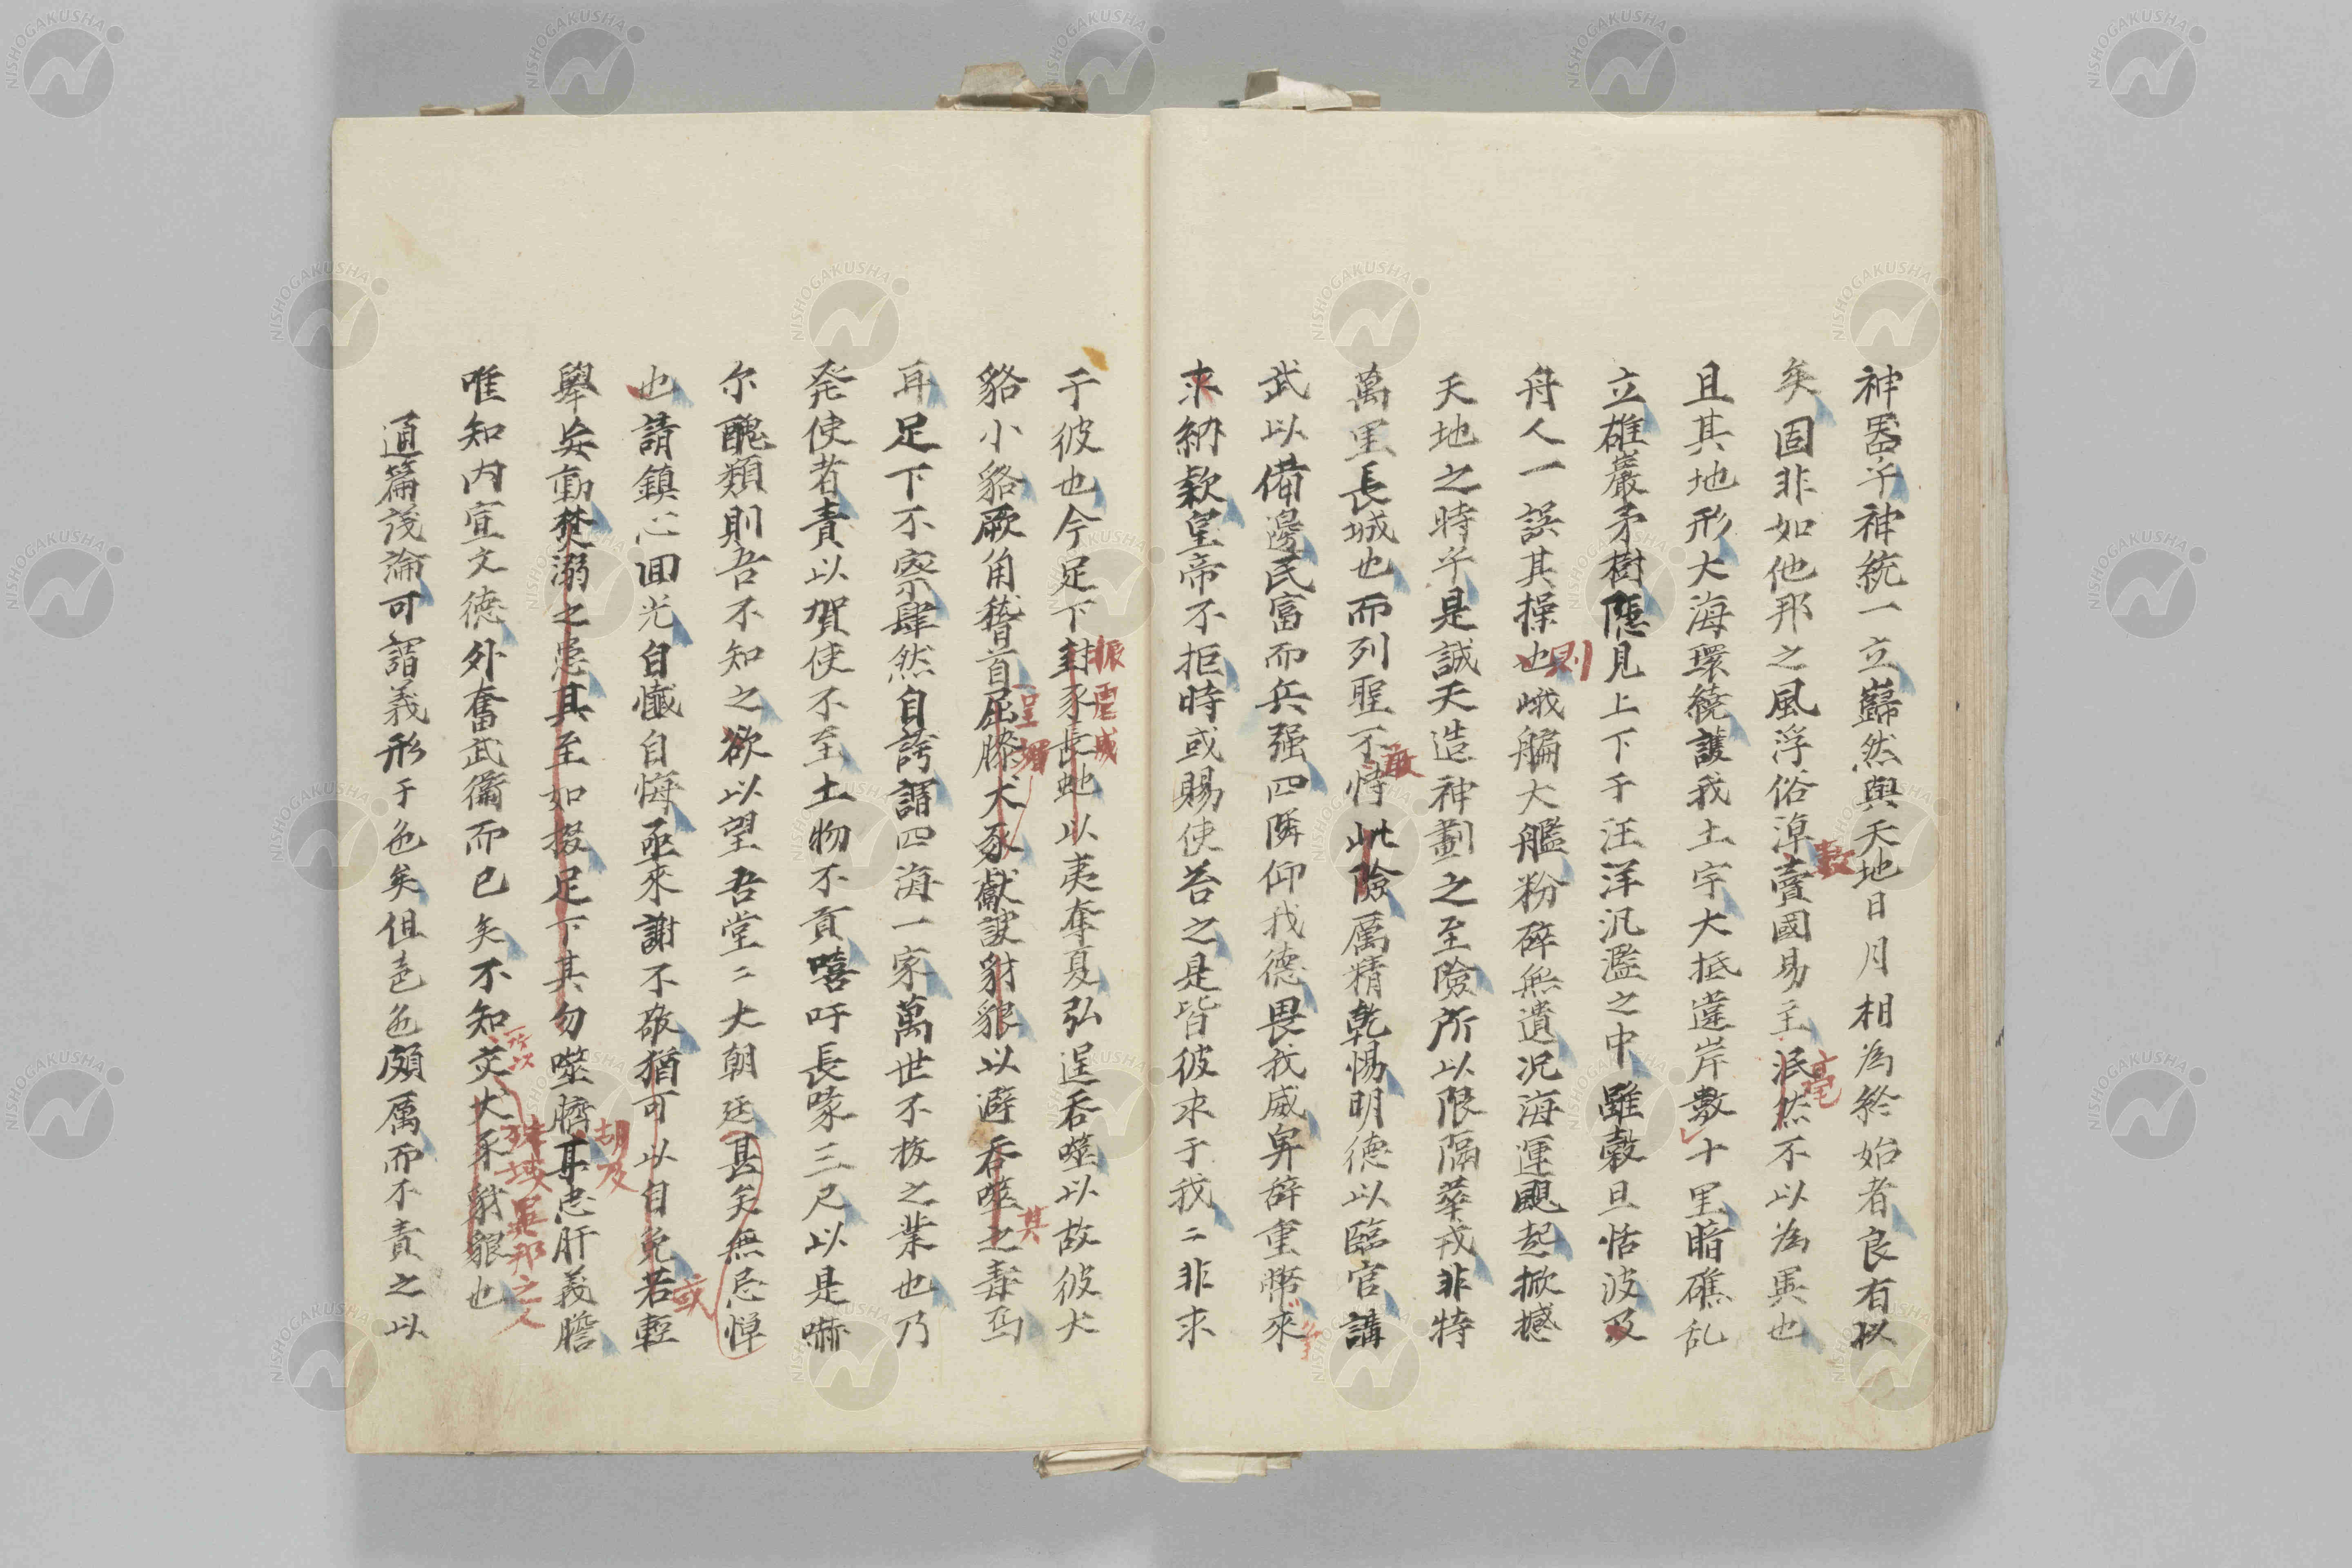 神器乎神統一立巋然與天地日月相為終始者良有以
矣固非如他邦之風浮俗淳賣國易主泯然不以為異也
數
毫
且其地形大海環繞護我土宇大抵違岸數十里暗礁乱
立雄巖矛樹隱見上下千汪洋汎濫之中雖穀旦恬波及
舟人一誤其操也峨艑大艦粉碎無遺況海運颶起掀撼
則
天地之時乎是誠天造神劃之至險所以限隔華戎非特
萬里長城也而列聖不恃此險厲精乾惕明德以臨官講
敢
武以備邊民富而兵强四隣仰我德畏我威卑辞重幣來
求納款皇帝不拒時或賜使答之是皆彼求于我二非求
于彼也今足下封豕長虵以夷奪夏弘逞吞噬以故彼犬
振虎威
貉小貉厥角稽首屈膝犬豕獻諛豺貇以避吞噬之毒焉
呈媚
其
耳足下不察肆然自誇謂四海一家萬世不拔之業也乃
発使者責以賀使不至土物不貢嘻吁長喙三尺以是嚇
尔醜類則吾不知之欲以望吾堂二大朝廷甚矣無忌憚
也請鎮心回光自懺自悔亟來謝不敬猶可以自免若輕
或
舉妄動焚溺之患其至如掇足下其勿噬臍耳忠肝義膽
胡及
唯知内宣文德外奮武衛而已矣不知交犬豕豺貇也
所以
殊域異邦之人
通篇議論可謂義形于色矣但色色頗厲而不責之以